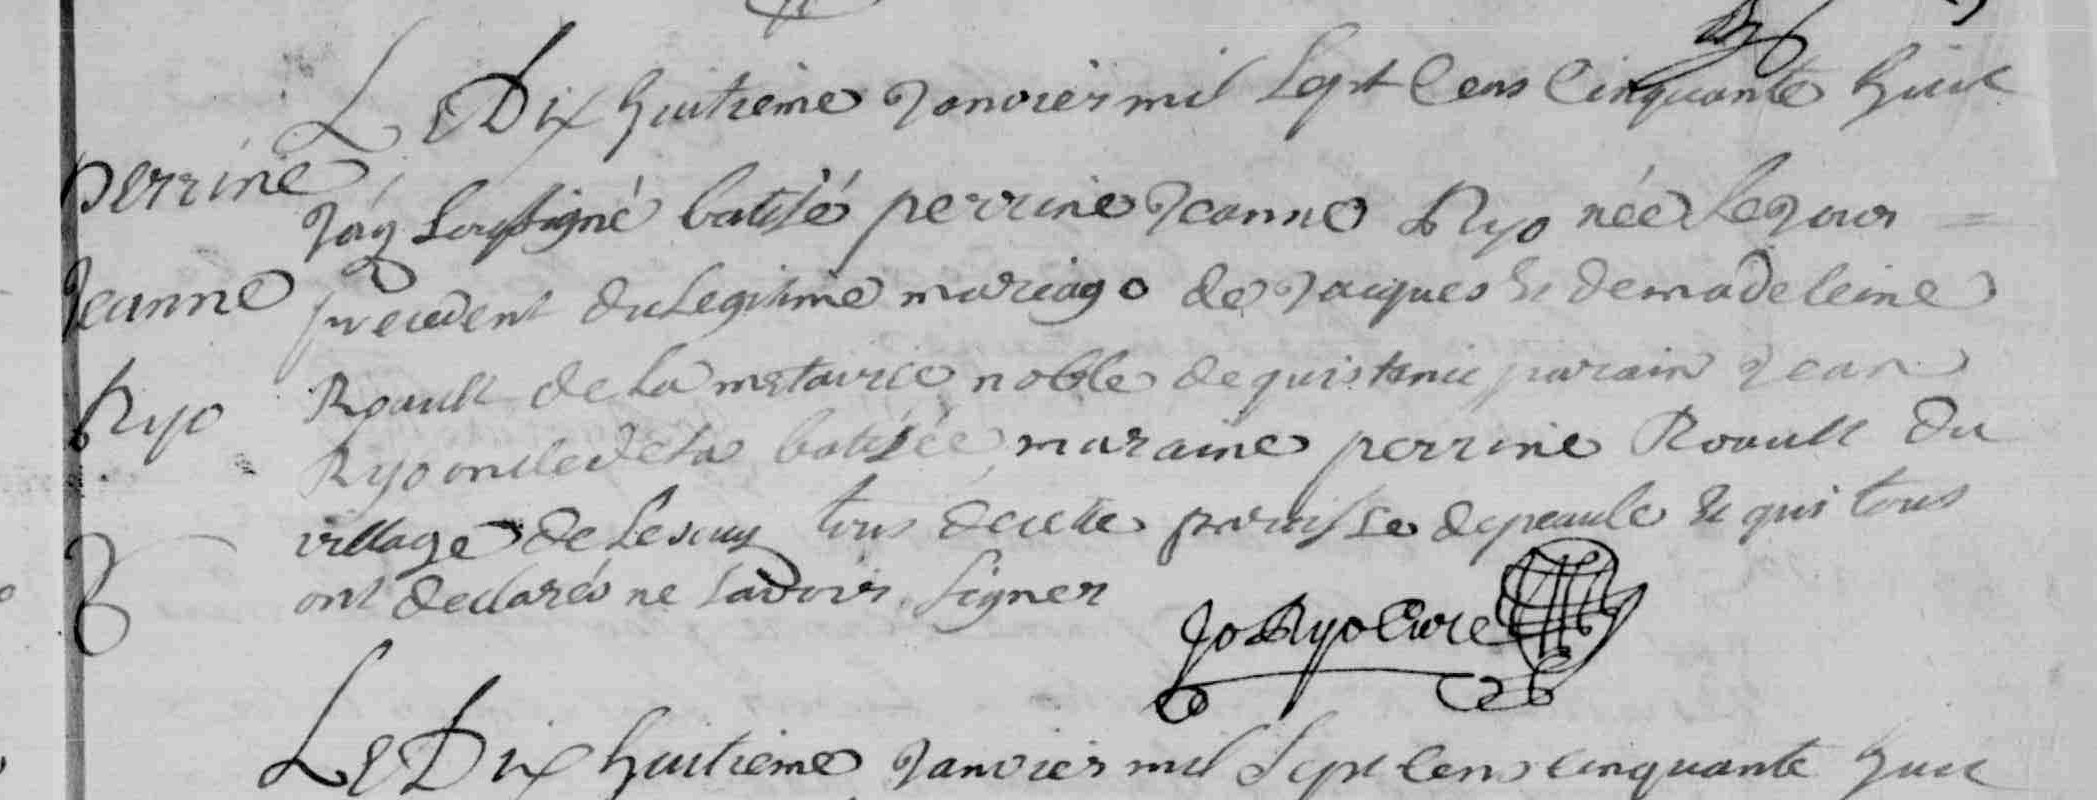 Le Dix huitieme Janvier mil sept cens cinquante huit
perrine
Jay soussigné batisé perrine Jeanne Ryo née le jour
Jeanne
precedent du legitime mariage de Jacques & de madeleine
Ryo
Roault de la metairie noble de quistinic parain Jean
Ryo oncle de la batisée, maraine perrine Roault du
village de tous de cette paroisse de peaule & qui tous
B
ont declarés ne savoir signer
Jo Ryo Curé
Le Dix huitieme Janvier mil sept cens cinquante huit